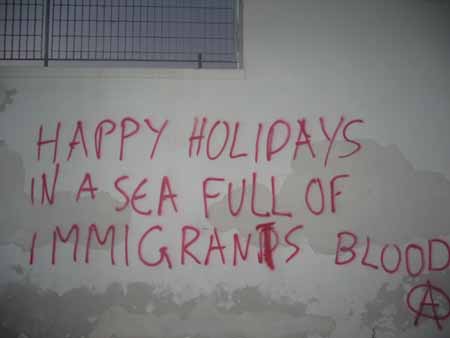 HAPPY HOLIDAYS
IN A SEA FULL OF
IMMIGRANTS BLOOD
Ⓐ